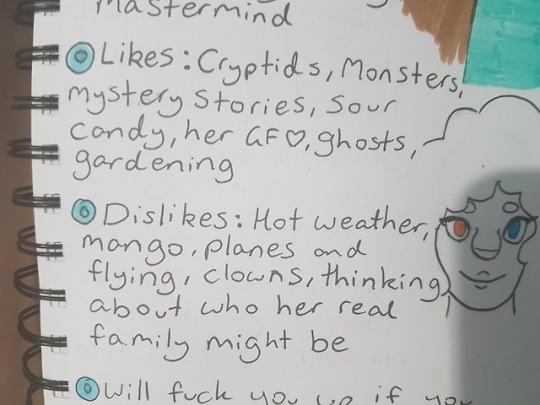 Mastermind
Likes: Cryptids, Monsters,
mystery stories, sour
candy, her GF ♡, ghosts,
gardening
Dislikes: Hot weather,
mango, planes and
flying, clowns, thinking
about who her real
family might be
Will fuck you up if you